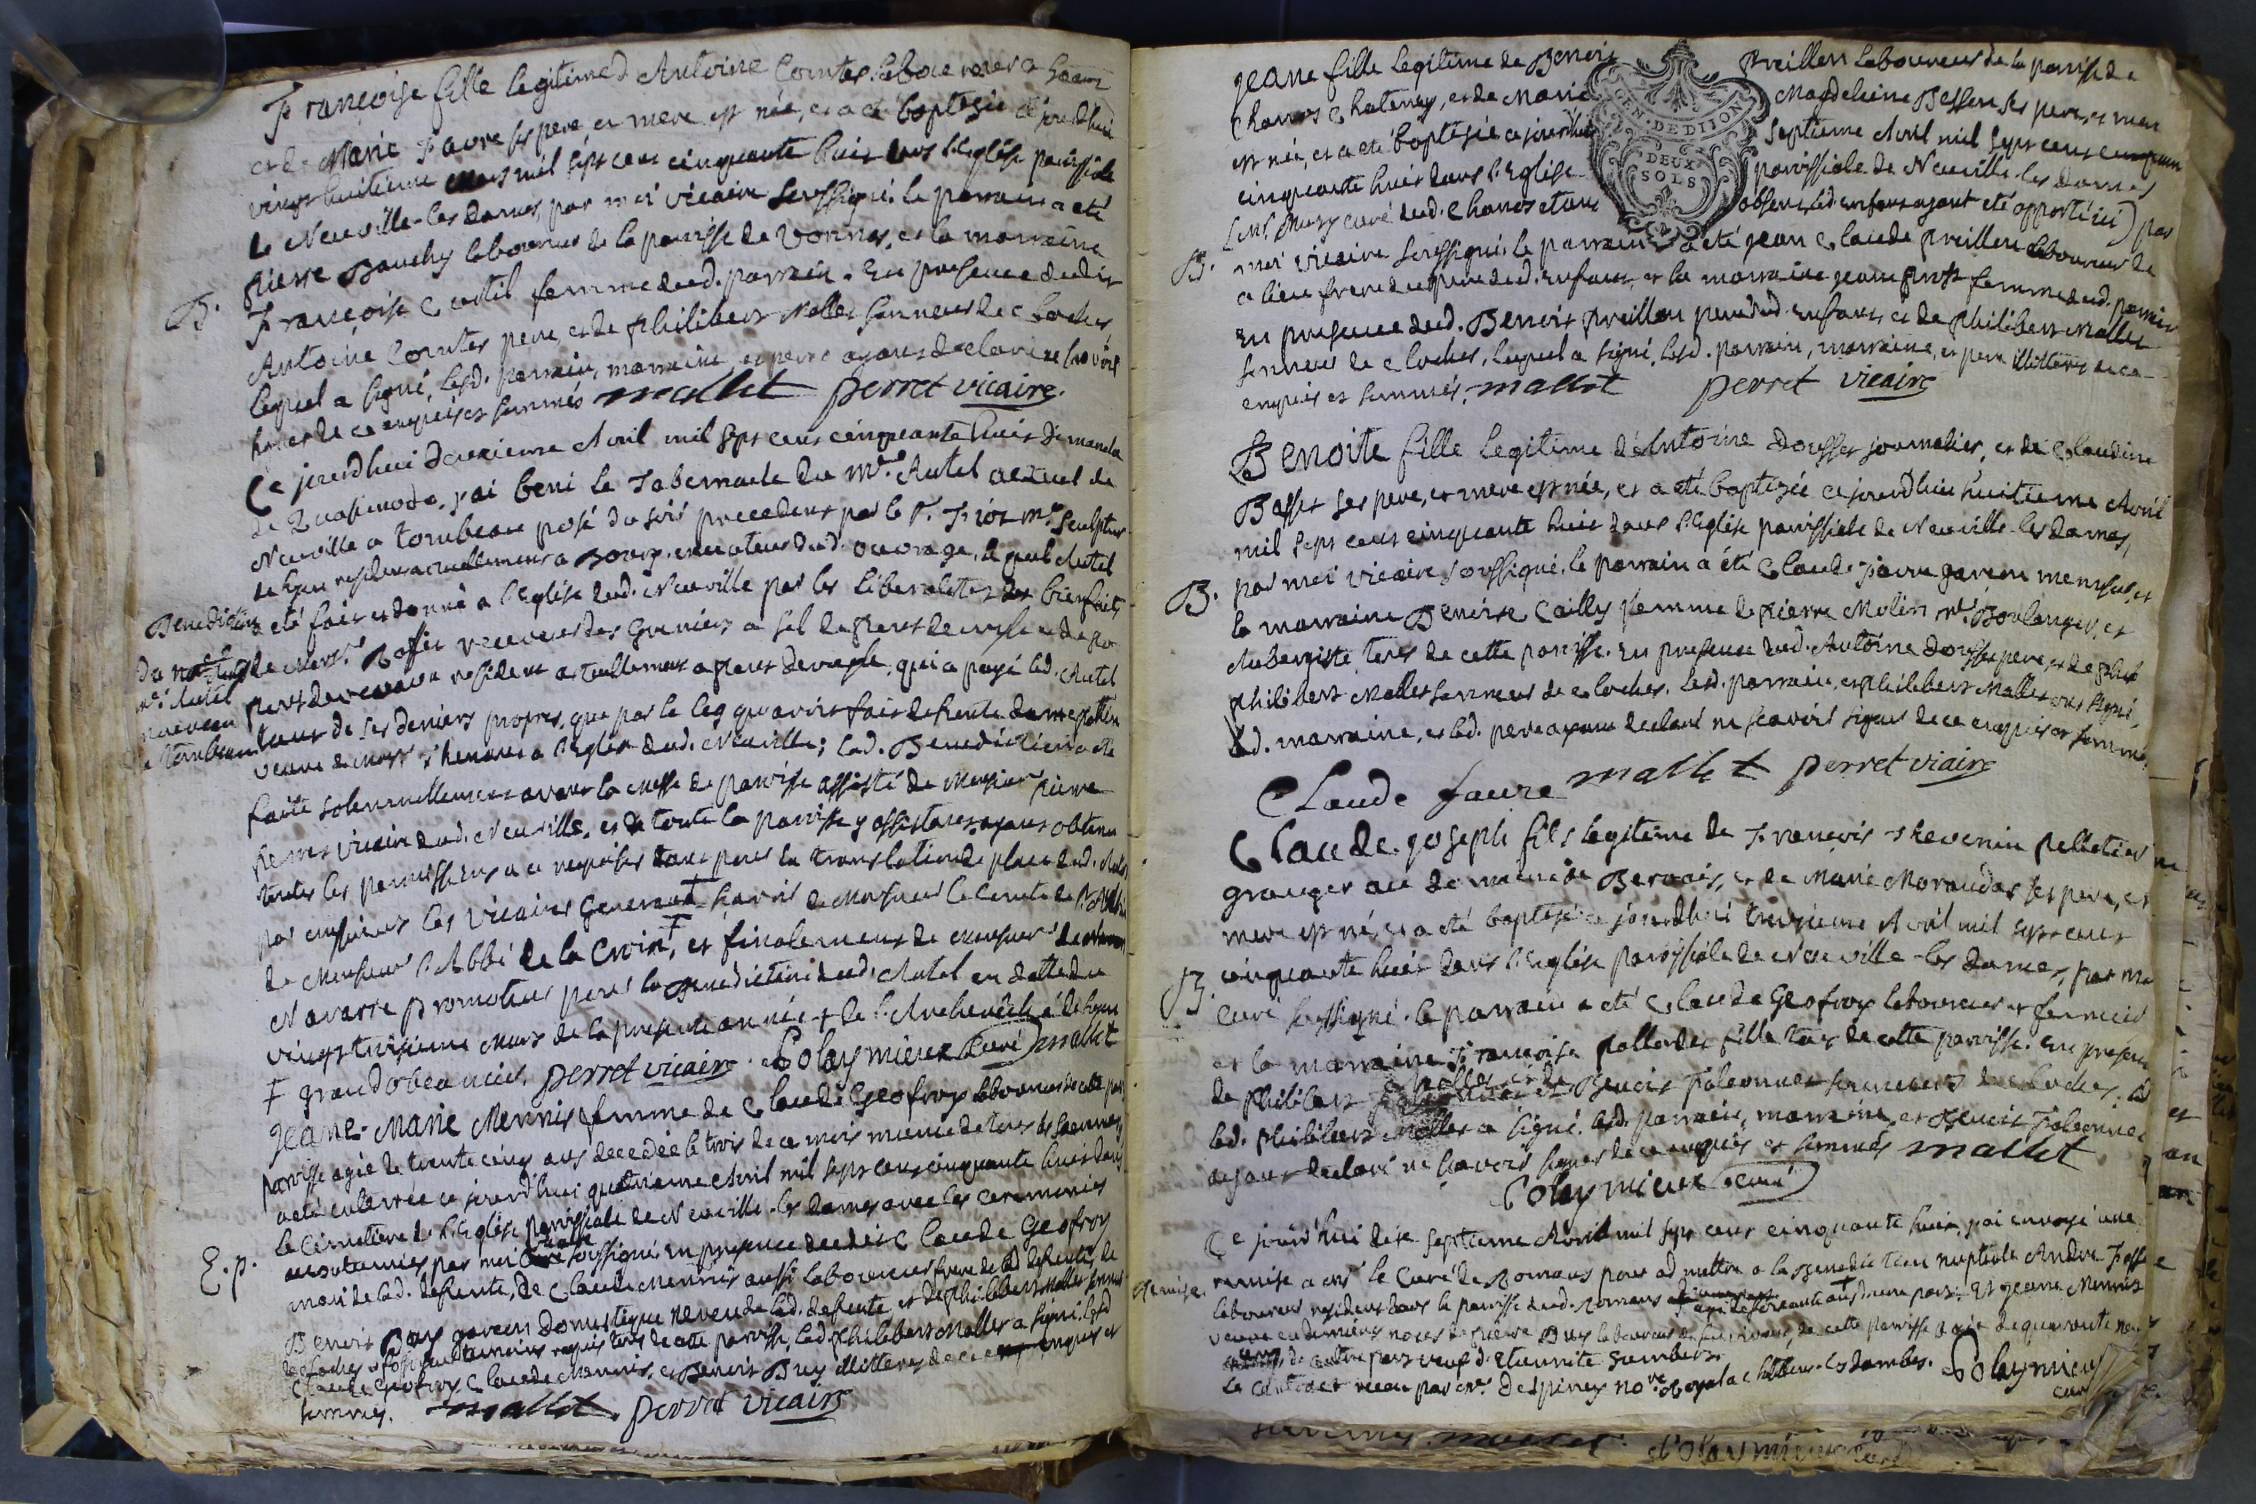 Françoise fille legitime d Antoine Comtes laboureur a
et de Marie Favre ses pere et mere est née, et a ete baptisée ce jourdhui
vingt huitieme mars mil sept cent cinquante huit dans l'Eglise paroissiale
de Neuville-les dames, par moi vicaire soussigné. le parrain a été
pierre Bouchy laboureur de la paroisse de vonnas, et la marraine
B.
Françoise Curtil femme dud. parrain. En presence dudit
Antoine Comtes pere, et de philibert Mallet sonneur de cloches,
lequel a signé, lesd. parrain, marraine, et pere ayans declaré ne scavoir
signer de ce enquis et sommés mallet perret vicaire.
Ce jourdhui deuxieme Avril mil sept cens cinquante huit dimanche
de Quasimodo, j'ai beni le Tabernacle du me. Autel actuel de
Neuville a tombeau posé du soir precedent par le Sr. me. sculpteur
de lyon residant actuellement a Bourg. executeur dud. ouvrage, lequel Autel
Benediction
a été fait et donné a l'Eglise dud. Neuville par les liberalités et bienfaits
du
de Messr. receveur des Greniers a sel de pont de vesle et de
me. Autel
pont de resident actuellement a pont de vesle, qui a payé led. Autel
nouveau
a tombeau
tant de ses deniers propres, que par le leg qu'avoit fait defunte dame
veuve de Monsr. Thenaud a l'Eglise dud. Neuville; lad. Benediction a été
faite solemnellement avant la messe de paroisse assisté de Monsieur pierre
perret vicaire dud. Neuville, et de toute la paroisse y assistante, ayans obtenu
toutes les permissions a ce requises tant pour la translation de place dud. Autel
par messieurs les vicaires Generaux sçavoir de Monsieur le Comte de St.
de Monsieur l'Abbé de la Croix ‡, et finalement de Monsieur de
Navarre promoteur pour la Benediction dud. Autel en datte du
vingt troisieme Mars de la presente année + de l'Archevêché de lyon
‡ grand obeancier. perret vicaire. Polaymieux Curé mallet
Jeane-Marie Mennis femme de Claude Geofroy laboureur de cette
paroisse agée de trente cinq ans decedée le trois de ce mois munie de tous les sacremens
a été enterrée ce jourdhui quatrieme Avril mil sept cens cinquante huit dans
le Cimetiere de l'Eglise paroissiale de Neuville-les dames avec les ceremonies
E. p.
accoutumées par moi vicaire soussigné. En presence dudit Claude Geofroy
mari de lad. defunte, de Claude Mennis aussi laboureur frere de lad. defunte, de
Benoit Buy garcon domestique neveu de lad. defunte et de philibert Mallet sonneur
de cloches et fossoyeur temoins requis tous de cette paroisse, led. philibert Mallet a signé. lesd.
Claude Geofroy Claude Mennis, et Benoit Buy illitterés de ce enquis et
sommés. mallet. perret vicaire
GEN. DE DIJON
DEUX
SOLS
Jeane fille legitime de Benoit preillon laboureur de la paroisse de
Chanos Chatenay, et de Marie Magdeleine Besson ses pere, et mere
est née, et a eté baptisée ce jourdhui septieme Avril mil sept cens
cinquante huit dans l'Eglise paroissiale de Neuville-les dames
(Mr. Muzy curé dud. Chanos etant absent, led. enfant ayant eté apporté ici) par
B.
moi vicaire soussigné. le parrain a été Jean Claude preillon laboureur de
a lieu frere du pere dud. enfant, et la marraine jeane femme dud. parrain
En presence dud. Benoit preillon pere dud. enfant, et de philibert Mallet
sonneur de cloches, lequel a signé, lesd. parrain, marraine, et pere illitterés de ce
enquis et sommés. mallet perret vicaire
Benoite fille legitime d'Antoine dousset journalier, et de Claudine
Basset ses pere, et mere est née, et a été baptisée ce jourdhui huitieme Avril
mil sept cens cinquante huit dans l'Eglise paroissiale de Neuville-les dames,
par moi vicaire soussigné. le parrain a été Claude favre garcon menusier, et
B.
la marraine Benoite Cailly femme de pierre Molin me. Boulanger, et
Aubergiste tous de cette paroisse. En presence dud. Antoine dousset pere, et de
philibert Mallet sonneur de cloches. lesd. parrain, et philibert Mallet ont signé,
lad. marraine, et led. pere ayans declaré ne scavoir signer de ce enquis et sommés.
Claude faure mallet perret viaire
Claude-Joseph fils legitime de François Thevenin pelletier
granger au domaine de Bervais, et de Marie Morandas ses pere, et
mere est né, et a été baptisé ce jourdhui treizieme Avril mil sept cens
cinquante huit dans l'Eglise paroissiale de Neuville-les dames, par moi
B.
curé soussigné. le parrain a été Claude Geofroy laboureur et fermier
et la marraine Françoise fille tous de cette paroisse. En presence
de philibert Mallet, et de Benoit Falconnet sonneurs de cloches.
led. philibert Mallet a signé. lesd. parrain, marraine, et Benoit Falconnet
ayans declaré ne sçavoir signer de ce enquis et sommés mallet
Polaymieux curé
Ce jourd'hui dix septieme Avril mil sept cens cinquante huit, j'ai envoyé une
Remise
remise a mr. le Curé de Romans pour admettre a la Benediction nuptiale André
laboureur resident dans la paroisse dud. Romans d'une part. Et jeane Mennis
veuve en dernieres noces de pierre Buy laboureur de cette paroisse agée de quarante
ans, d'autre part veuf d'Etiennette
le contract recu par me. Despiney nore. Royal a chatillon-les dombes. Polaymieux
curé
mallet. Polaymieux curé